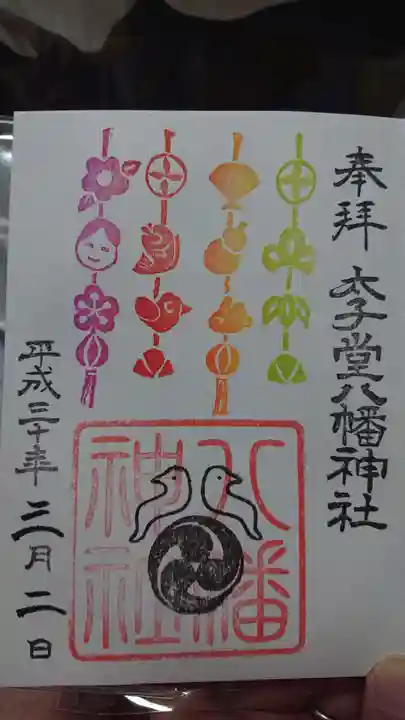 奉拝 太子堂八幡神社
八幡
神社
平成三十年 三月二日